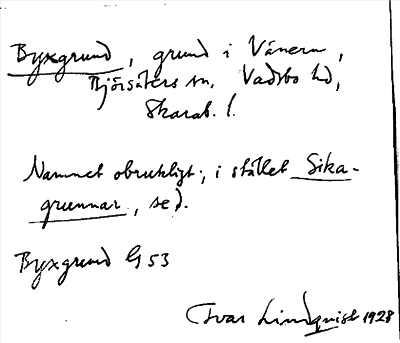 Byxgrund, grund i Vänern,
Björsäters sn. Vadsbo hd,
Skarab. l.
Namnet obrukligt; i stället Sika-
grunnar, se d.
Byxgrund G 53
Ivar Lindquist 1928